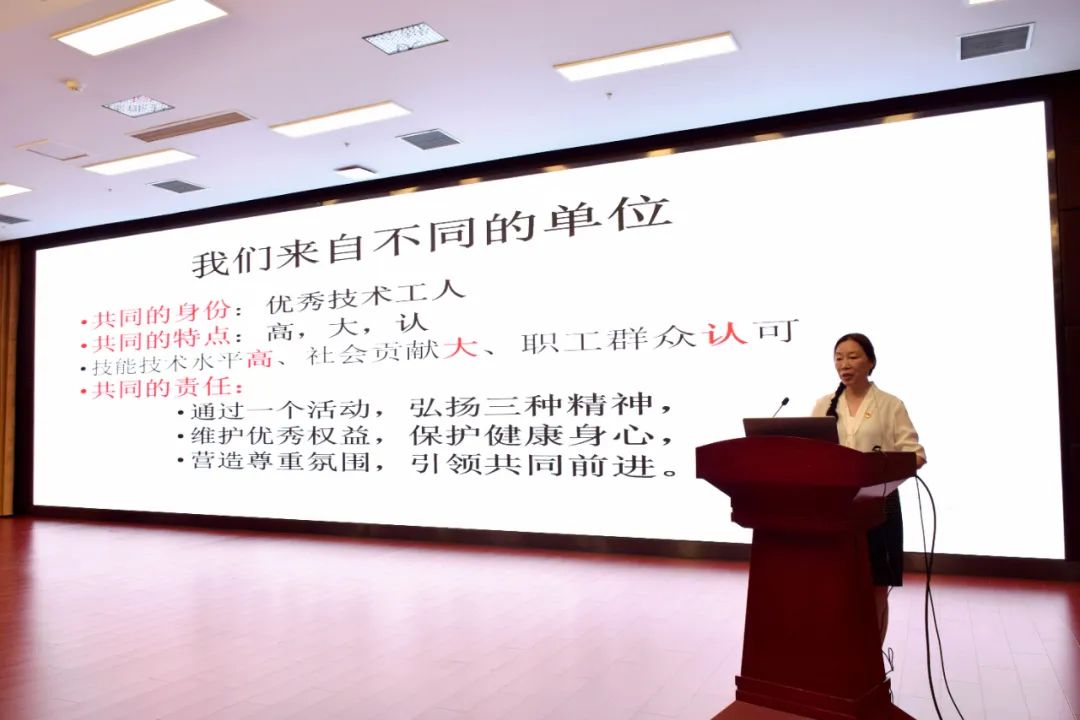 我们来自不同的单位
•共同的身份：优秀技术工人
•共同的特点：高，大，认
•技能技术水平高、社会贡献大、职工群众认可
•共同的责任：
•通过一个活动，弘扬三种精神，
•维护优秀权益，保护健康身心，
•营造尊重氛围，引领共同前进。